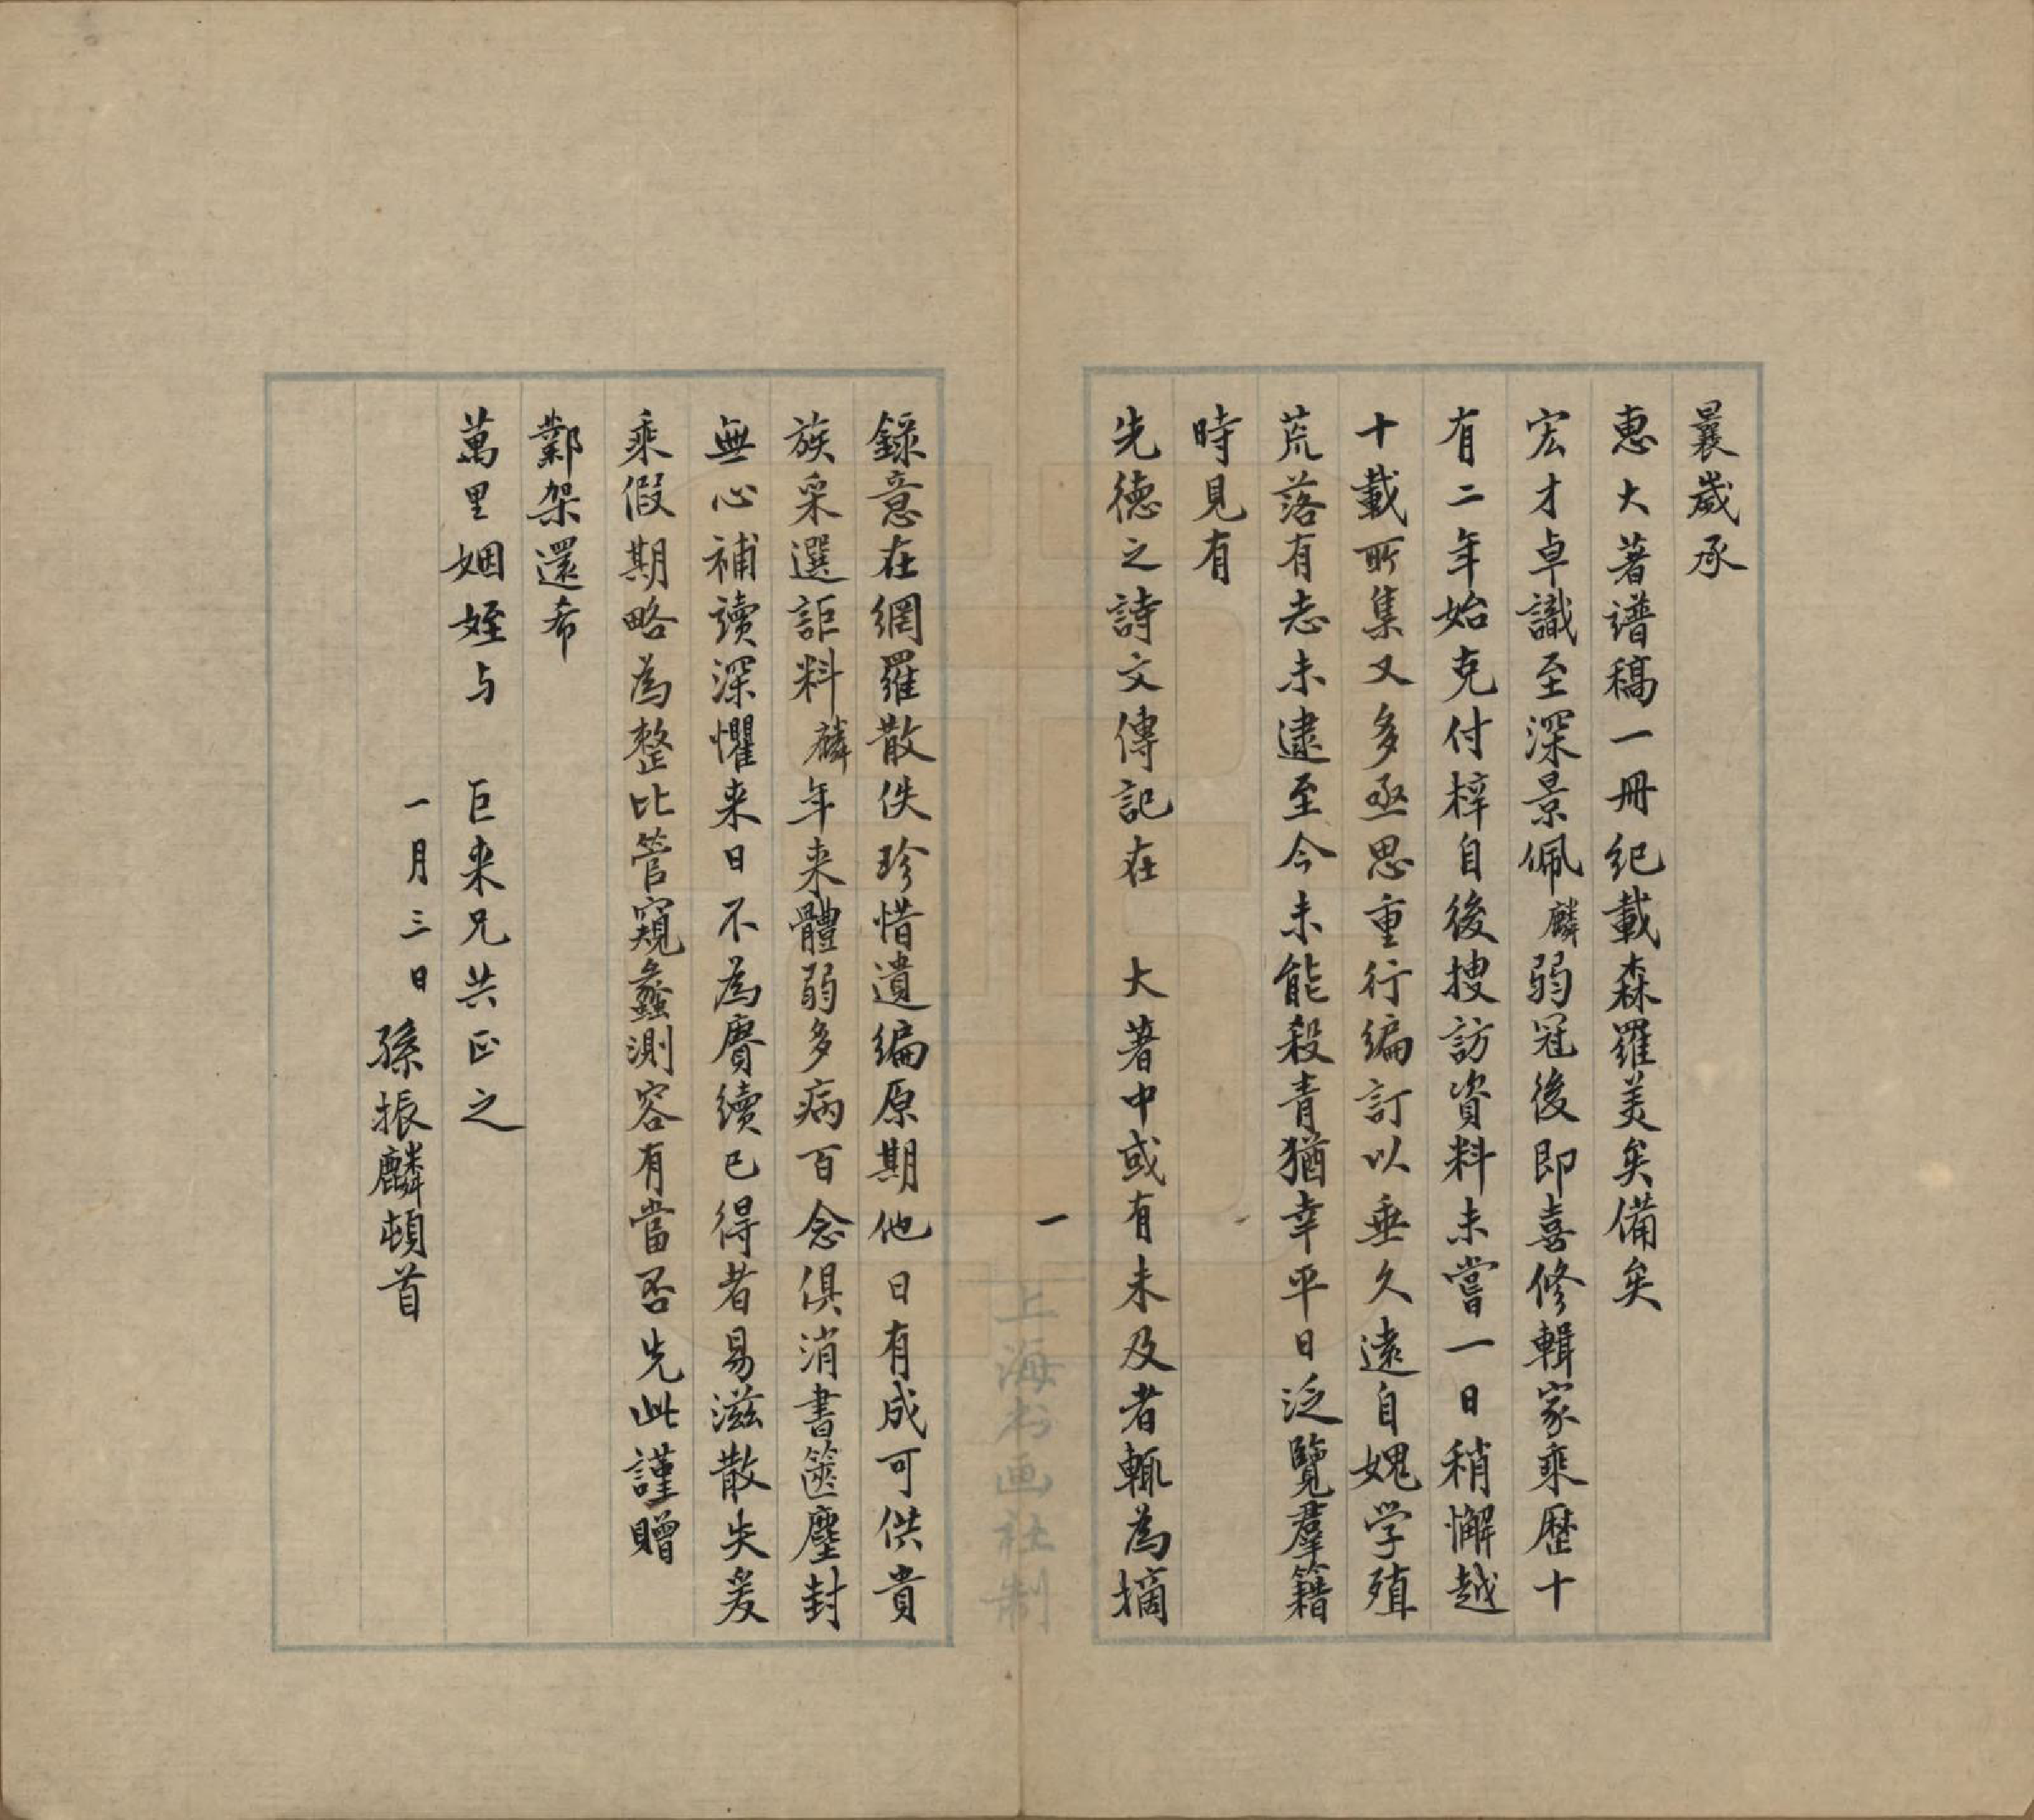 曩歲承
惠大著谱稿一冊紀載森羅美矣備矣
宏才卓識至深景佩麟弱冠後即喜修輯家乘歷十
有二年始克付梓自後搜訪資料未嘗一日稍懈越
十載所集又多亟思重行编訂以垂久遠自媿学殖
荒落有志未逮至今未能殺青猶幸平日泛覽羣籍
時見有
先德之詩文傳記在 大著中或有未及者輒為摘
一
上海书画社制
錄意在網羅散佚珍惜遺编原期他日有成可供貴
族采選詎料麟年来體弱多病百念俱消書篋塵封
無心補讀深懼来日不為賡續已得者易滋散失爰
乘假期略為整比管窺蠡測容有當否先此謹贈
鄴架還希
萬里姻姪与 巨来兄共正之
一月三日 孫振麟頓首